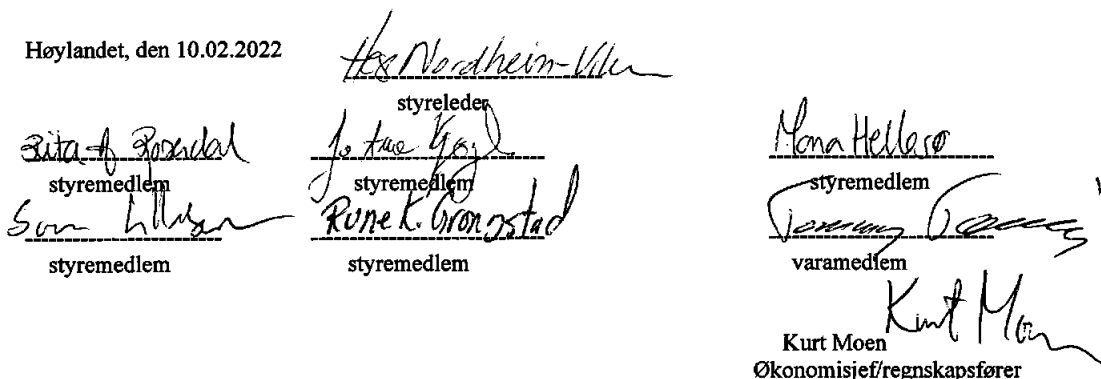 Høylandet, den 10.02.2022
Nordheim-
styreleder
Rita Rosendal
styremedlem
styremedlem
Mona Hellesø
styremedlem
styremedlem
Rune K. Grongstad
styremedlem
Tommy
varamedlem
Kurt Moen
Kurt Moen
Økonomisjef/regnskapsfører